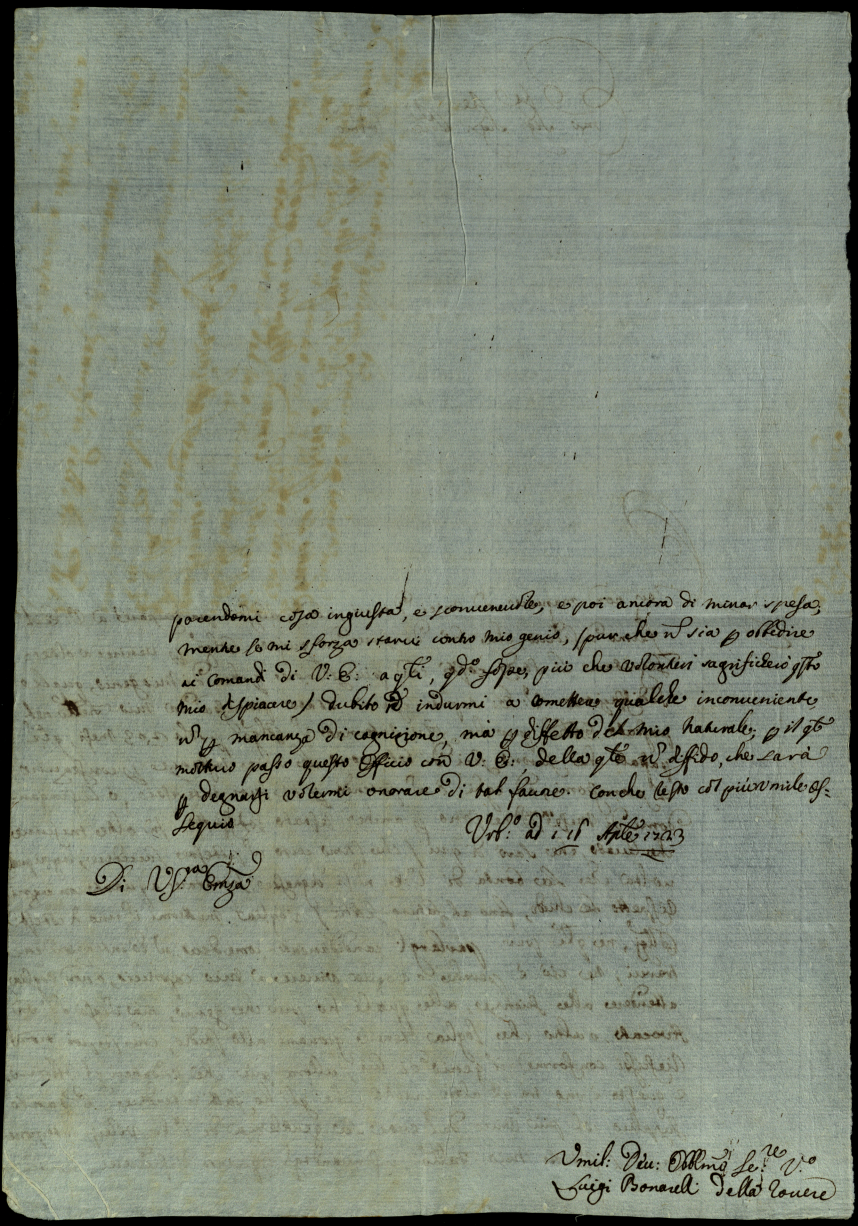 parendomi cosa ingiusta, e sconvenevole, e poi ancora di minor spesa,
mente se mi sforza starci contro mio genio, (pur che nō sia p obbedire
ai comandi di V: E: a q̄li, qdo più che volontieri sagrifichero q̄sto
mio dispiacere) dubito d'indurmi a cometter qualche inconveniente
nō p mancanza di cognizione, mà p diffetto del mio naturale, p il q̄le
motivo passo questo Officio con V: E: della q̄le nō diffido, che sarà
p degnassi volermi onorare di tal favore. Con che resto col più umile os-
sequio
Urb:o ad i 18 Aple 1723
Di V.ra Emza
Umil: Deu: Obblmo Se:re V:o
Luigi Bonarelli Della Rovere